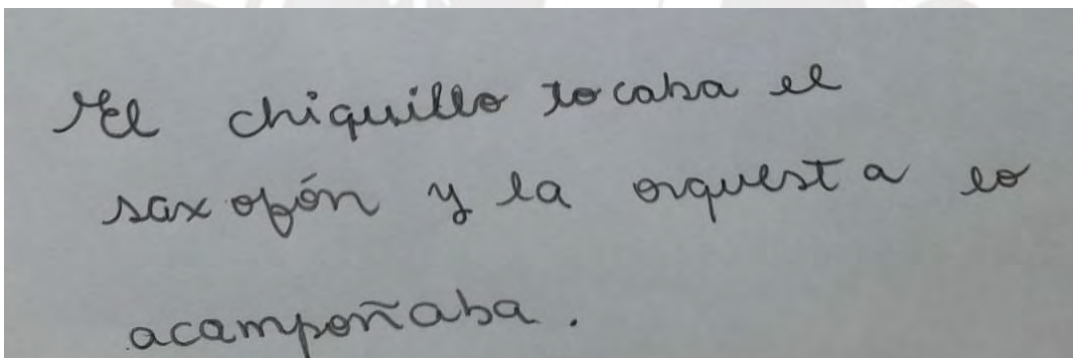 El chiquillo tocaba el
saxofón y la orquesta lo
acampoñaba.